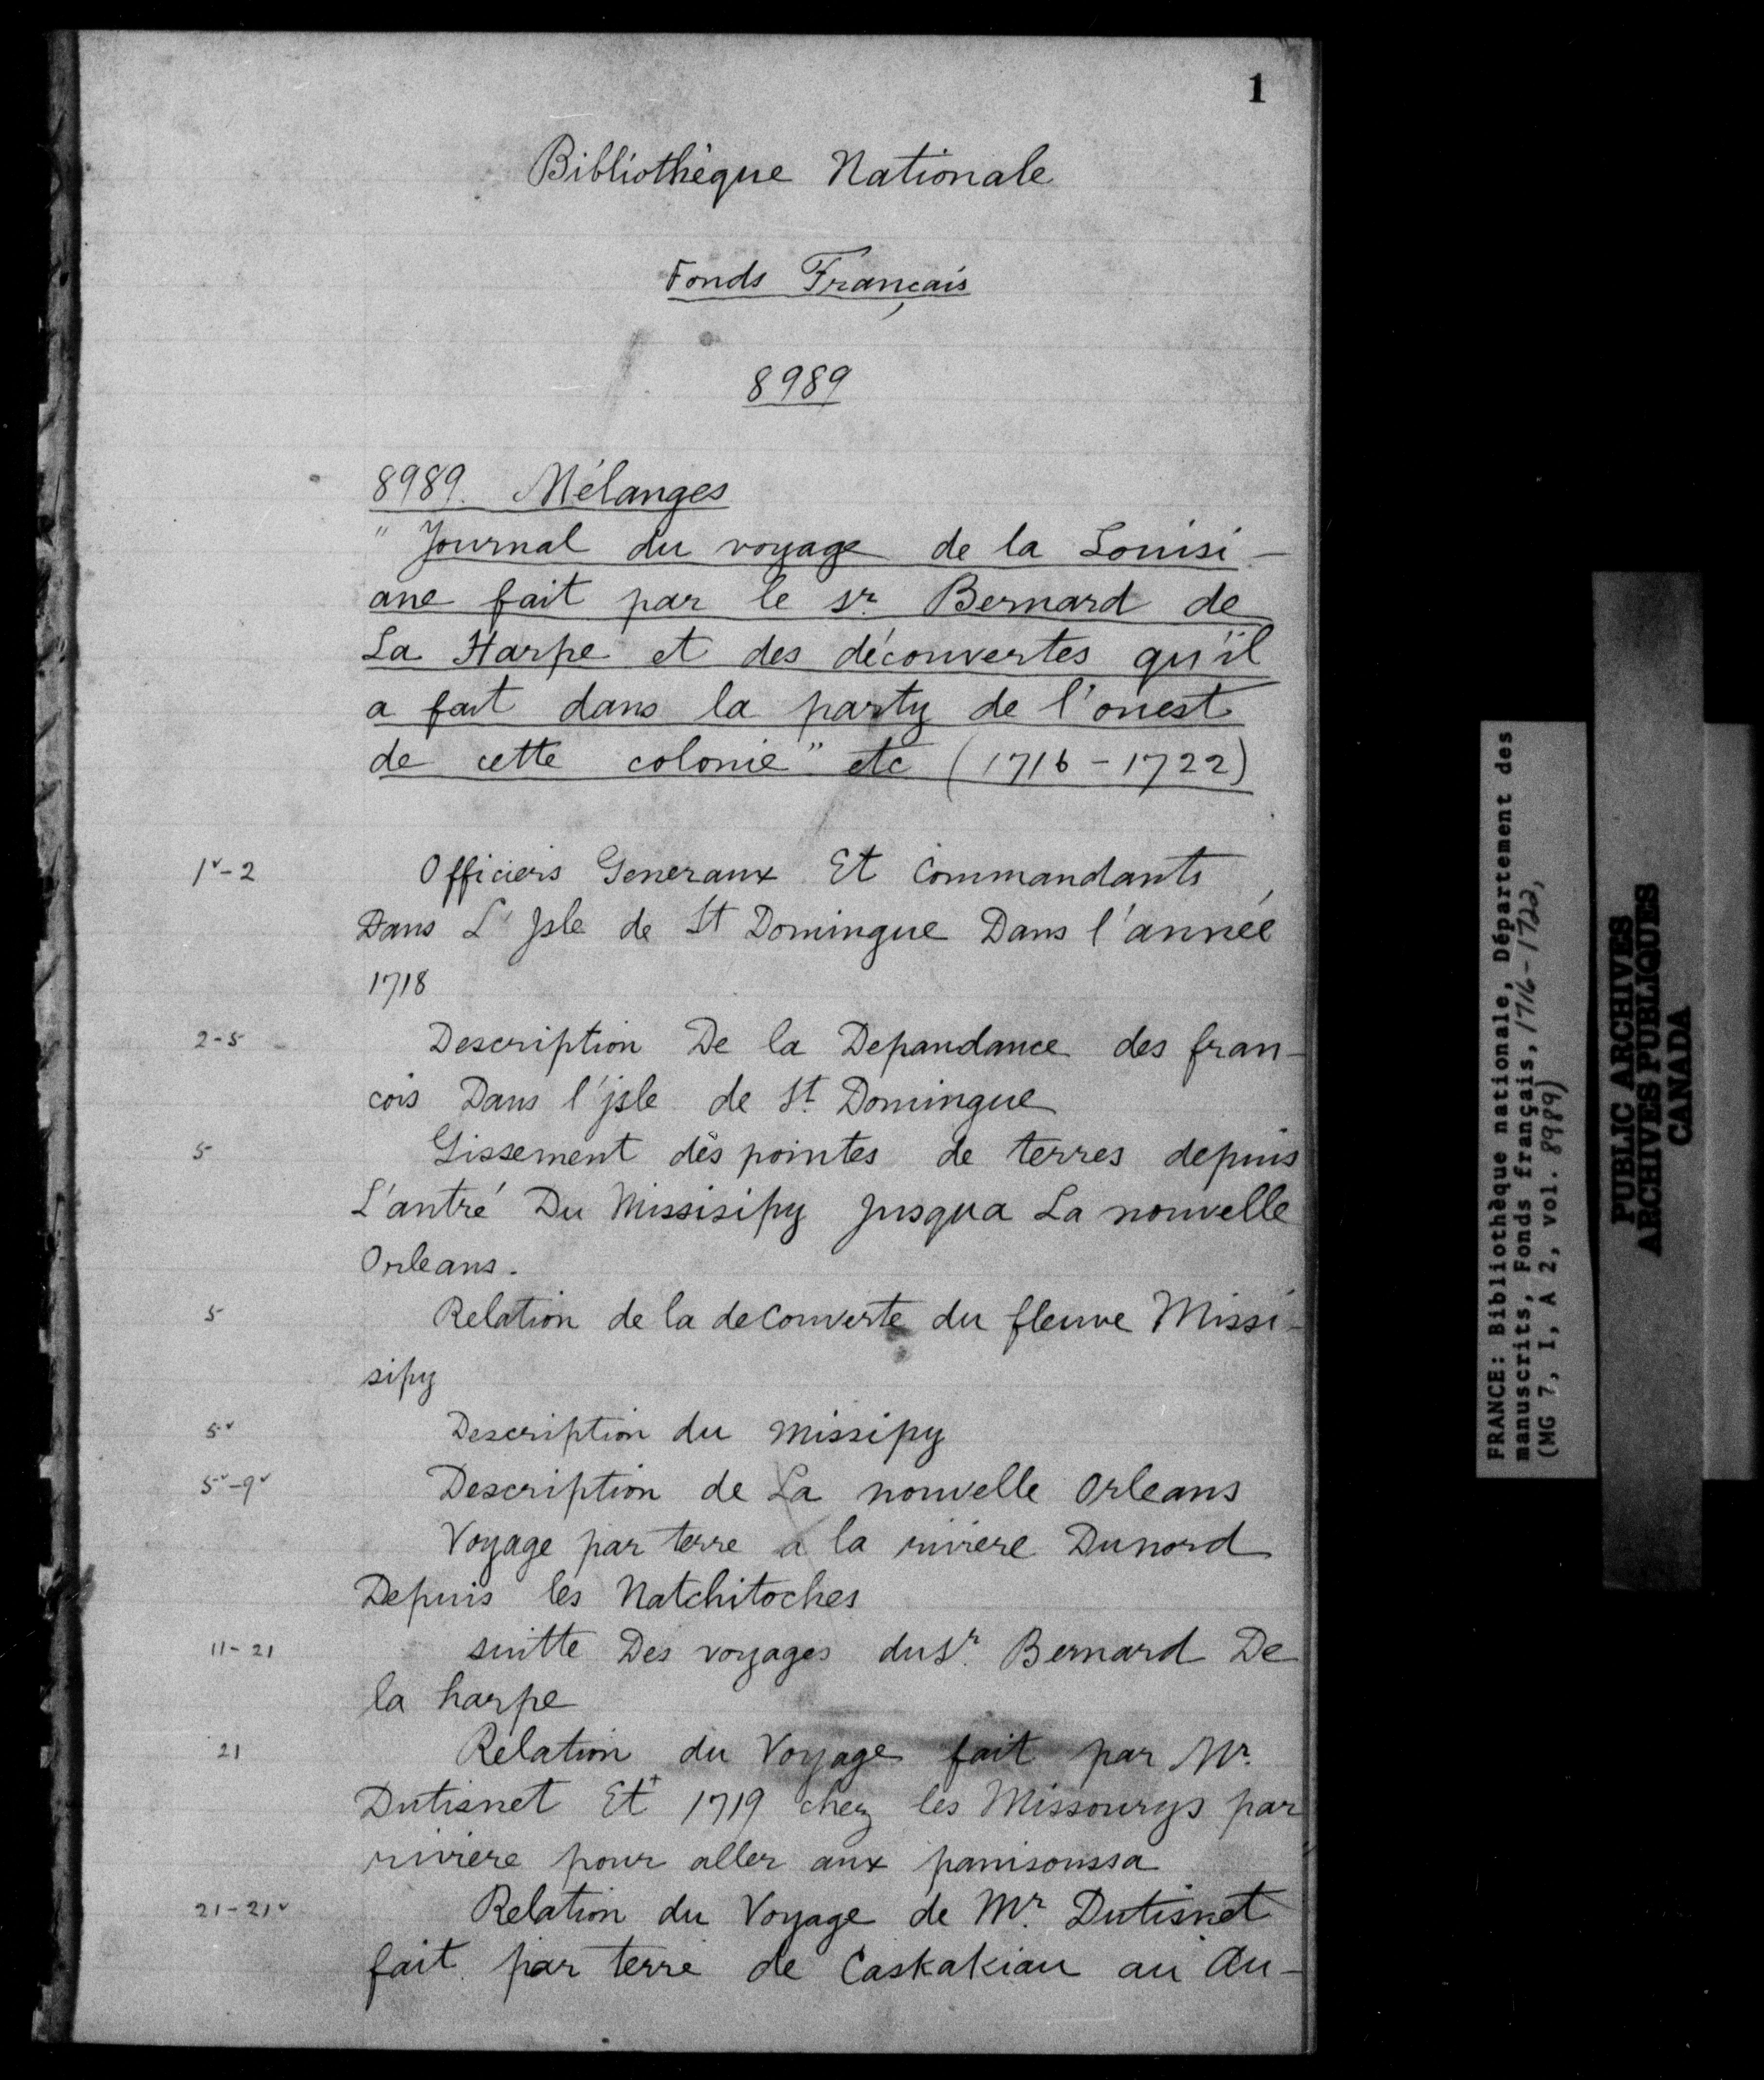 1
Bibliothèque Nationale
Fonds Français
8989
8989. Mélanges
"Journal du voyage de la Louisi-
ane fait par le sr. Bernard de
La Harpe et des découvertes qu'il
a fait dans la party de l'ouest
de cette colonie" etc (1716-1722)
1v-2 Officiers Generaux Et Commandants,
Dans L'Jsle de St Domingue Dans l'année
1718
2-5 Description De la Depandance des fran-
cois Dans l'jsle de St. Domingue
5 Gissement des pointes de terres depuis
L'antré Du Missisipy Jusqua La nouvelle
Orleans.
5 Relation de la deCouverte du fleuve Missi-
sipy
5v Description du Missipy
5v-9v Description de La nouvelle Orleans
Voyage par terre a la riviere Dunord
Depuis les Natchitoches
11-21 suitte Des voyages du Sr. Bernard De
la harpe
21 Relation du Voyage fait par Mr.
Dutisnet Et+ 1719 chez les Missourys par
riviere pour aller aux panisoussa
21-21v Relation du Voyage de Mr. Dutisnet
fait par terre de Caskakiau au Au-
FRANCE: Bibliothèque nationale, Département des
manuscrits, Fonds français, 1716-1722,
(MG 7, I, A 2, vol. 8989)
PUBLIC ARCHIVES
ARCHIVES PUBLIQUES
CANADA